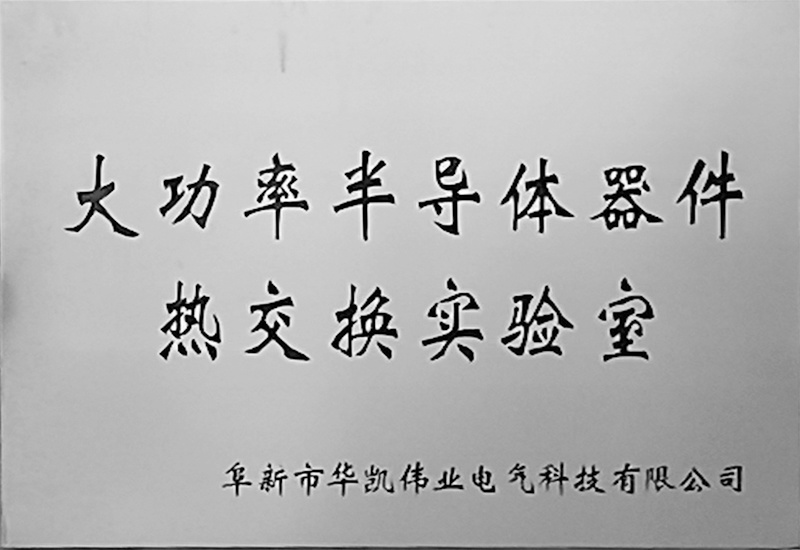 大功率半导体器件
热交换实验室
阜新市华凯伟业电气科技有限公司